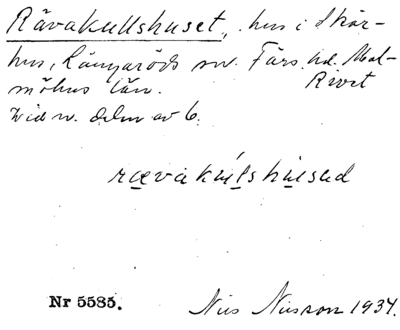 Rävakullshuset, hus i Skår-
hus, Långaröds sn. Färs hd. Mal-
Rivet
möhus län.
Vid n. delen av 6.
rævakúlshúsəd
Nr 5585.
Nils Nilsson 1934.